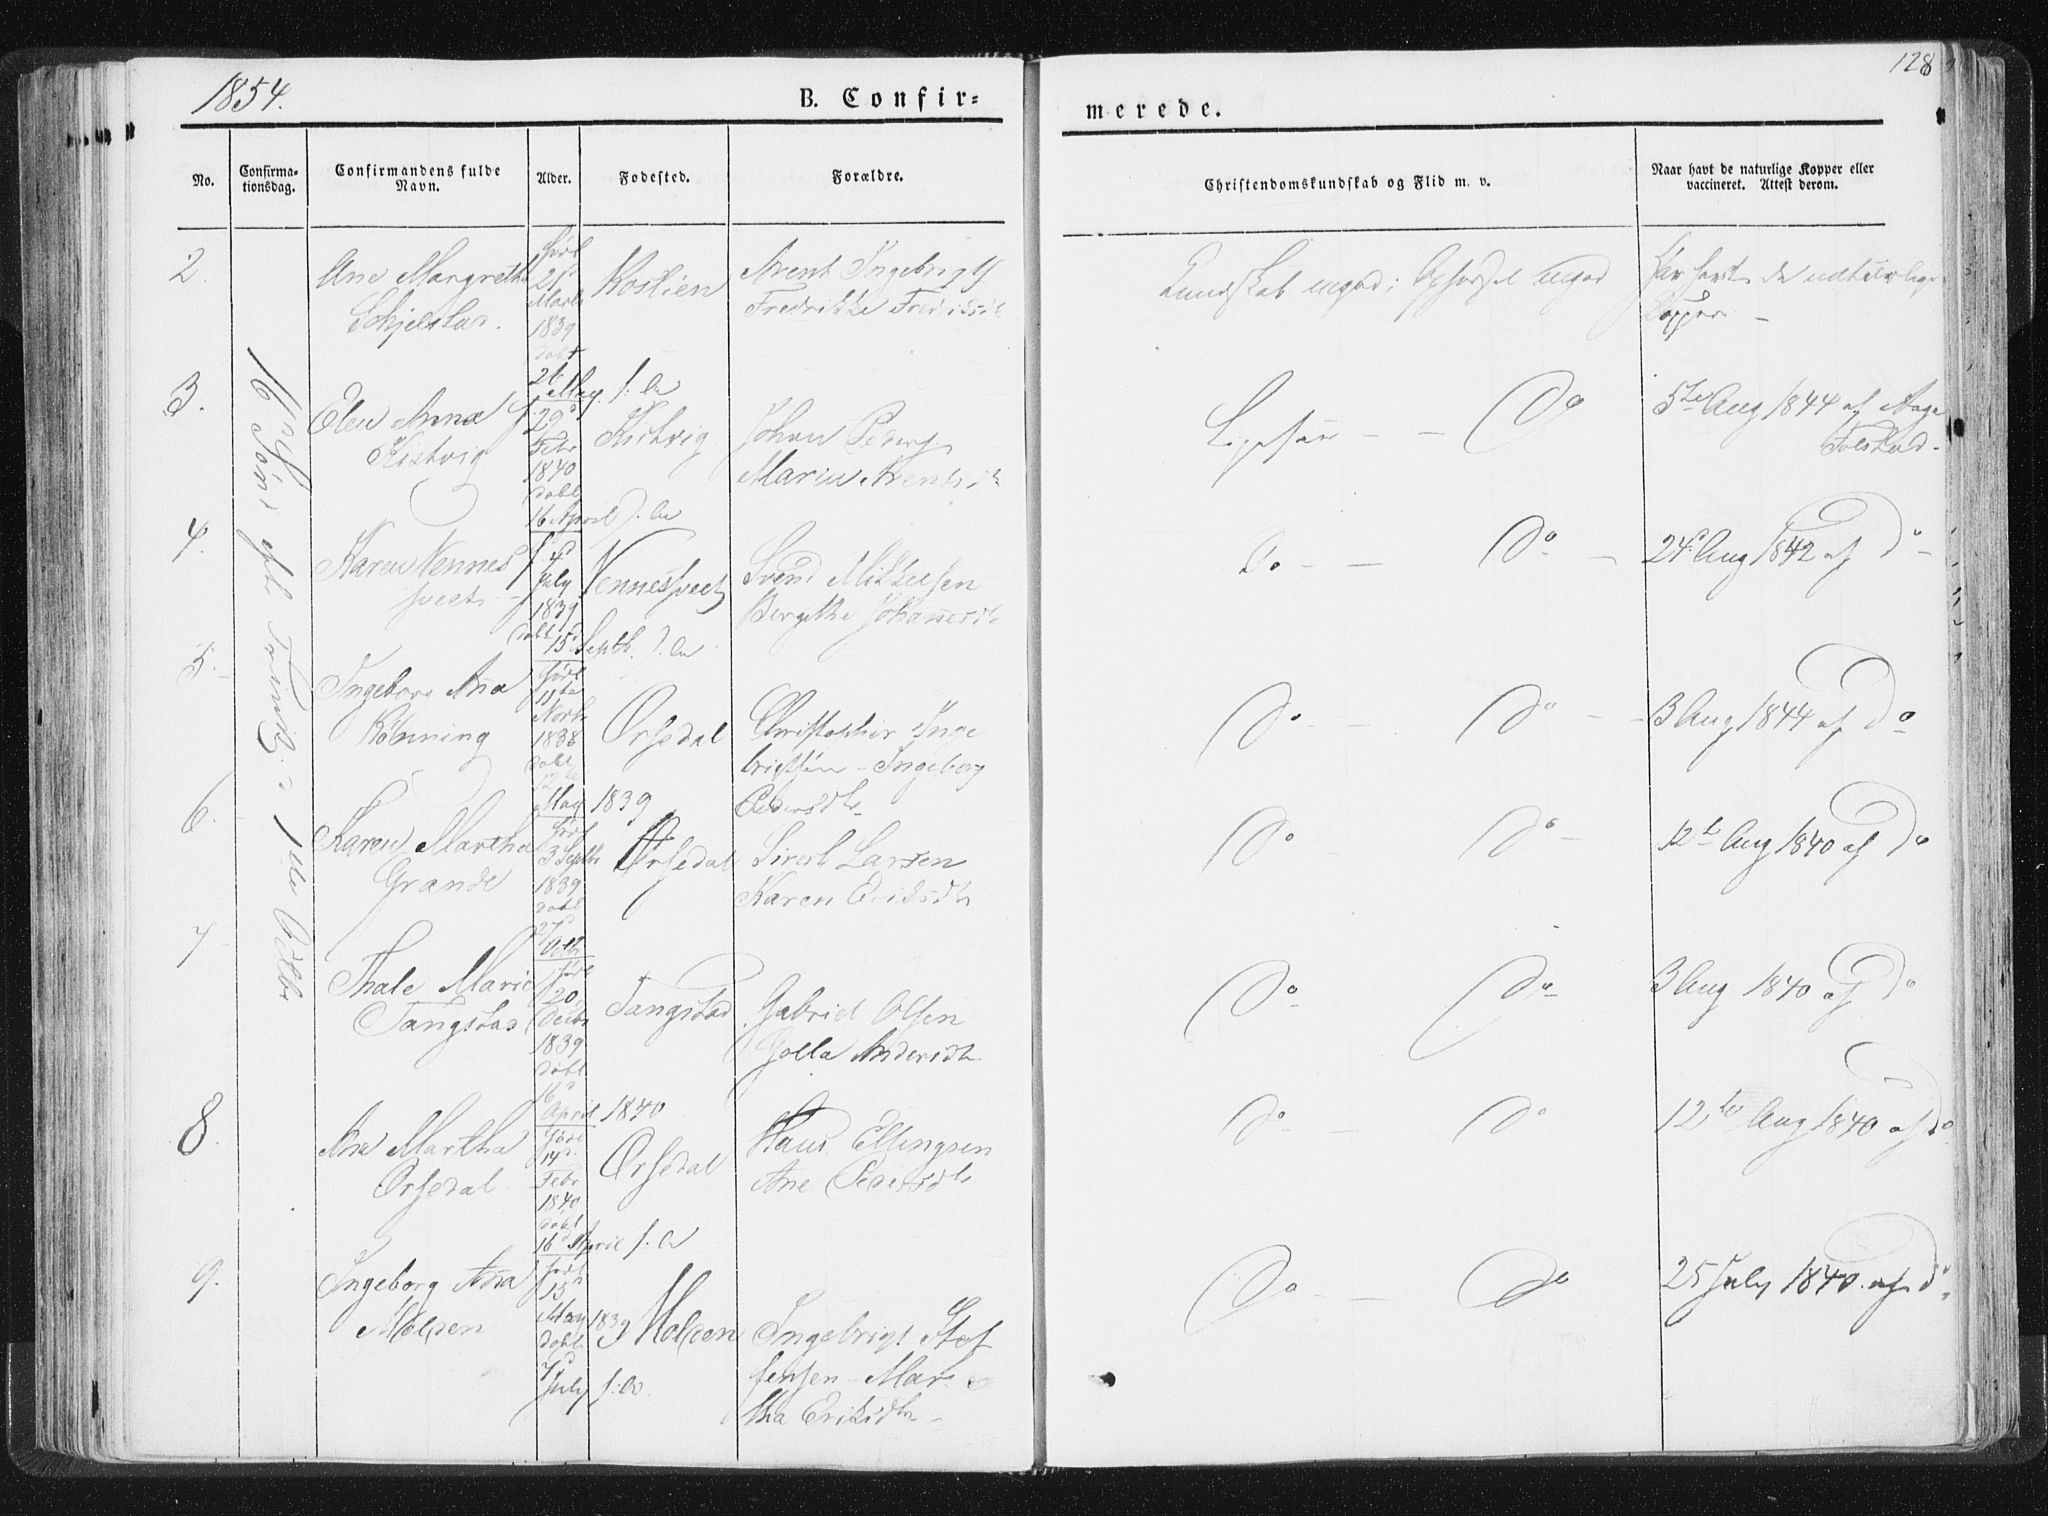 1854.
B. Confir-
merede.
128
No.
Confirma-
tionsdag.
Confirmandens fulde
Navn.
Alder.
Fødested.
Forældre.
Christendomskundskab og Flid m. v.
Naar havt de naturlige Kopper eller
vaccineret. Attest derom.
16 Sønd eft Trinit: 1ste Octbr
2.
Ane Margrethe
født
21
Marts
1839
døbt
21 May s: A
Arent Ingebrigts
Fredrikke Fredriksdt
Kundskab megod; Opførsel megod
Har havt de naturlige
Kopper -
3.
Elen Anna
Kistvig
f.
29
Febr
1840
døbt
16 April s. A
Kistvig
Johan Peders
Maren Arentsdt
Ligesaa - -
Do
5te Aug 1844 af Aage
Tolstad -
4.
Karen Vennes
hveet
f 4
July
1839
døbt 15 Septb. s. A
Venneshveet
Svend Mikkelsen
Bergithe Johannesdt
Do - -
Do -
24d Aug 1842 af Do -
5.
Ingeborg Ana
Kølnning
født
11te
Novbr
1838
døbt
May 1839
Ørsedal
Christopher Inge
brigtsen - Ingeborg
Pedersdtr
Do -
Do - -
3 Aug 1844 af Do
6.
Karen Martha
Grande
født
3 Septbr
1839
døbt
27
Octb
Ørsedal
Sivert Larsen
Karen Eriksdtr
Do
Do -
12te Aug 1840 af Do
7.
Thale Marie
Tangstad
født
20
Decbr
1839
døbt
16
April 1840
Tangstad
Gabriel Olsen
Golla Andersdtr
Do
Do -
3 Aug 1840 af Do
8.
Ana Martha
Ørsedal
født
14d
Febr
1840
døbt
16 April s: A
Ørsedal
Haus Ellingsen
Ane Pedersdtr
Do -
Do
12te Aug 1840 af Do
9.
Ingeborg Ana
Molden
født
15
May 1839
døbt
7d
July s: A.
Molden
Ingebrigt Stef
fensen - Mar
tha Eriksdtr -
Do -
Do
25 July 1840. af Do